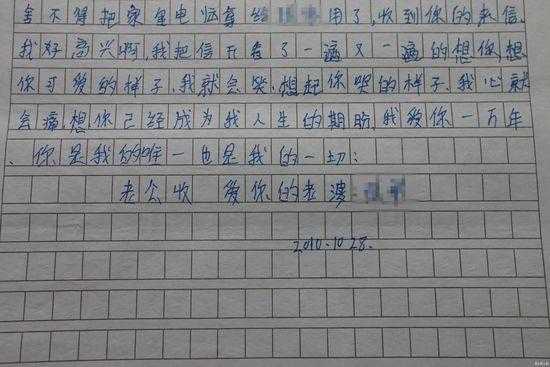 舍不得把家里电脑拿给 用了,收到你的来信.
我好高兴啊,我把信瓦看了一遍又一遍的想你,想
你可爱的样子.我就会笑.想起你哭的样子.我心就
会痛.想你已经成为我人生的期盼,我爱你一万年
、你是我的唯一也是我的一切:
老公收 爱你的老婆
2010.10.28.